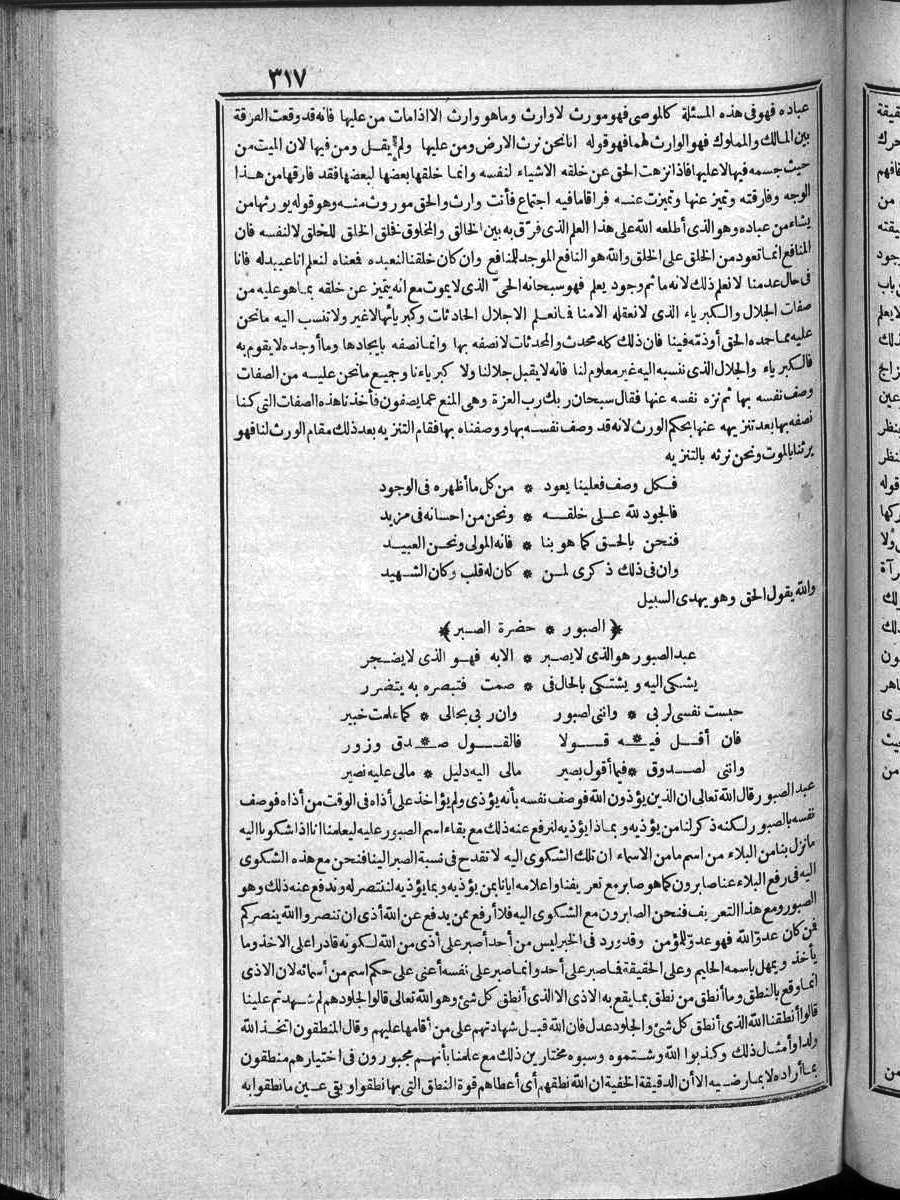 ٣١٧
عباده فهو فى هذه المسئلة كالموصى فهو مورث لا وارث وما هو وارث الا اذا مات من عليها فانه قد وقعت الفرقة
بين المالك والمملوك فهو الوارث لهما فهو قوله انا نحن نرث الارض ومن عليها ولم يقل ومن فيها لان الميت من
حيث جسمه فيها لا عليها فاذا نزهت الحق عن خلقه الاشياء لنفسه وانما خلقها بعضها لبعضها فقد فارقها من هذا
الوجه وفارقته وتميز عنها وتميزت عنه فراقا ما فيه اجتماع فأنت وارث والحق موروث منه وهو قوله يورثها من
يشاء من عباده وهو الذى أطلعه الله على هذا العلم الذى فرّق به بين الخالق والمخلوق فخلق الخلق للخلق لا لنفسه فان
المنافع انما تعود من الخلق على الخلق والله هو النافع الموجد للمنافع وان كان خلقنا لنعبده فمعناه لنعلم انا عبيد له فانا
فى حال عدمنا لا نعلم ذلك لانه ما ثم وجود يعلم فهو سبحانه الحىّ الذى لا يموت مع انه يتميز عن خلقه بما هو عليه من
صفات الجلال والكبرياء الذى لا نعقله الا منا فما نعلم الا جلال الحادثات وكبريائها لا غير ولا تنسب اليه ما نحن
عليه مما حمده الحق أو ذمّه فينا فان ذلك كله محدث والمحدثات لا نصفه بها وانما نصفه بايجادها وما أوجده لا يقوم به
فالكبرياء والجلال الذى ننسبه اليه غير معلوم لنا فانه لا يقبل جلالنا ولا كبرياءنا وجميع ما نحن عليه من الصفات
وصف نفسه بها ثم نزه نفسه عنها فقال سبحان ربك رب العزة وهى المنع عما يصفون فأخذنا هذه الصفات التى كنا
نصفه بها بعد تنزيهه عنها بحكم الورث لانه قد وصف نفسه بها ووصفناه بها فقام التنزيه بعد ذلك مقام الورث لنا فهو
يرثنا بالموت ونحن نرثه بالتنزيه
فكل وصف فعلينا يعود * من كل ما أظهره فى الوجود
فالجود لله على خلقه * ونحن من احسانه فى مزيد
فنحن بالحق كما هو بنا * فانه المولى ونحن العبيد
وان فى ذلك ذكرى لمن * كان له قلب وكان الشهيد
والله يقول الحق وهو يهدى السبيل
﴿الصبور * حضرة الصبر﴾
عبد الصبور هو الذى لا يصبر * الا به فهو الذى لا يضجر
يشكى اليه ويشتكى بالحال فى * صمت فتبصره به يتضرر
حبست نفسى لربى * واننى لصبور وان ربى بحالى * كما علمت خبير
فان أقل فيه * قولا فالقول صدق * وزور
واننى لصدوق * فيما أقول بصير مالى اليه دليل * مالى عليه نصير
عبد الصبور قال الله تعالى ان الذين يؤذون الله فوصف نفسه بأنه يؤذى ولم يؤاخذ على أذاه فى الوقت من أذاه فوصف
نفسه بالصبور لكنه ذكر لنا من يؤذيه وبماذا يؤذيه لنرفع عنه ذلك مع بقاء اسم الصبور عليه ليعلمنا انا اذا شكونا اليه
ما نزل بنا من البلاء من اسم ما من الاسماء ان تلك الشكوى اليه لا تقدح فى نسبة الصبر الينا فنحن مع هذه الشكوى
اليه فى رفع البلاء عنا صابرون كما هو صابر مع تعريفنا واعلامه ايانا بمن يؤذيه وبما يؤذيه لننتصر له وندفع عنه ذلك وهو
الصبور ومع هذا التعريف فنحن الصابرون مع الشكوى اليه فلا أرفع ممن يدفع عن الله أذى ان تنصروا الله ينصركم
فمن كان عدوّ الله فهو عدوّ للمؤمن وقد ورد فى الخبر ليس من أحد أصبر على أذى من الله لكونه قادرا على الاخذ وما
يأخذ ويمهل باسمه الحليم وعلى الحقيقة فما صبر على أحد وانما صبر على نفسه أعنى على حكم اسم من أسمائه لان الاذى
انما وقع بالنطق وما أنطق من نطق بما يقع به الاذى الا الذى أنطق كل شئ وهو الله تعالى قالوا الجلودهم لم شهدتم علينا
قالوا أنطقنا الله الذى أنطق كل شئ والجلود عدل فان الله قبل شهادتهم على من أقامها عليهم وقال المنطقون اتخذ الله
ولدا وأمثال ذلك وكذبوا الله وشتموه وسبوه مختارين ذلك مع علمنا بأنهم مجبورون فى اختيارهم منطقون
بما أراده لا بما رضيه الا أن الدقيقة الخفية ان الله نطقهم أى أعطاهم قوة النطق التى بها نطقوا وبقى عين ما نطقوا به